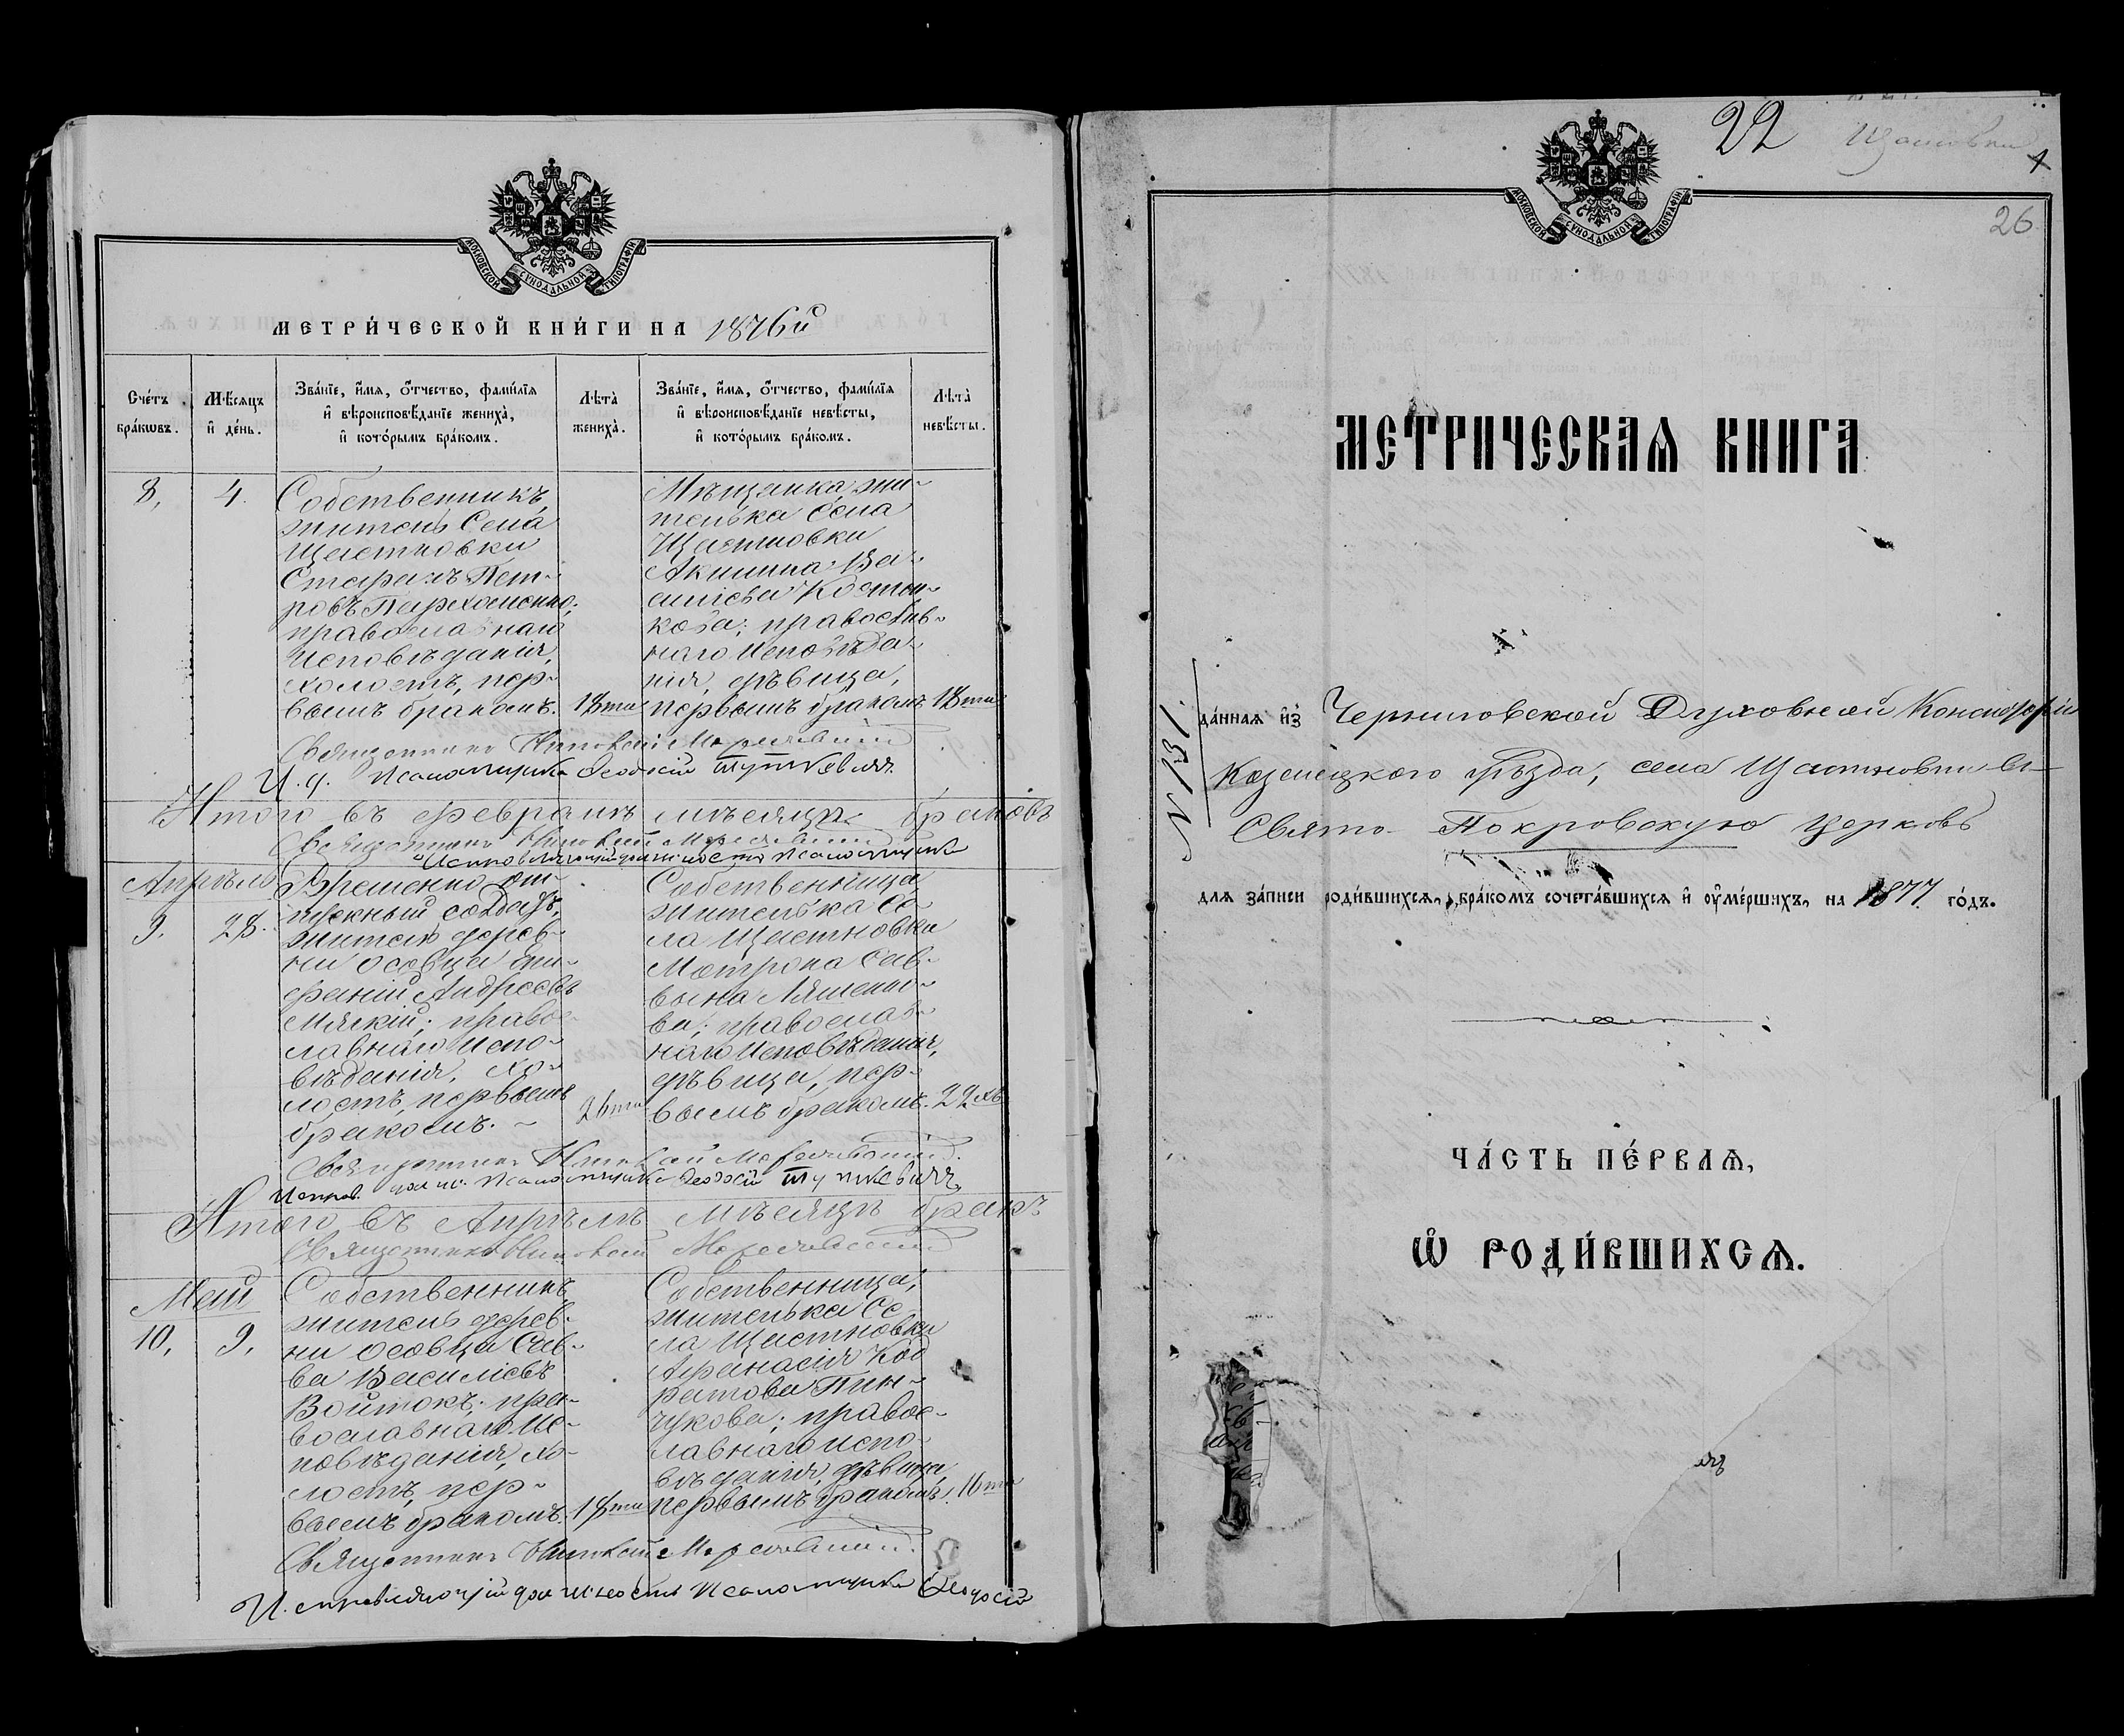 МОСКОВСКОЙ СѴНОДАЛЬНОЙ ТИПОГРАФІИ
МЕТРИ́ЧЕСКОЙ КНИ́ГИ НА 1876й
Сче́тъ бра́кѡвъ.
Мѣ́сяцъ и де́нь.
Зва́нїе, и́мя, ѻ́тчество, фами́лїя
и вѣроисповѣ́данїе жениха̀,
и кото́рымъ бра́комъ.
Лѣта̀ жениха̀.
Зва́нїе, и́мя, ѻ́тчество, фами́лїя
и вѣроисповѣ́данїе невѣ́сты,
и кото́рымъ бра́комъ.
Лѣта̀ невѣ́сты.
8, 4.
Собственникъ,
житель Села
Щастновки
Пет-
ровъ Пархоменко,
православнаго
Исповѣданія,
холостъ, пер-
вымъ бракомъ. 18ти
Мѣщанка, жи-
телька Села
Щастновки
Акилина Ва-
силіева Костю-
кова; православ-
наго Исповѣда-
нія, дѣвица,
первымъ бракомъ 18ти
Священникъ Николай
И. д. Псаломщика Ѳеодосій Тупкевичъ.
Итого въ февралѣ мѣсяцѣ браковъ
Священникъ Николай
Исправляющій должность Псаломщика
Апрѣль
9. 28.
Временно от-
пускный солдатъ,
житель дерев-
ни Осовца
Андреевъ
Мягкій; право-
славнаго Испо-
вѣданія, хо-
лостъ, первымъ
бракомъ. 26ти
Собственница,
жителька Се-
ла Щастновки
Мотрона Сав-
вына Ляшенко-
ва; православ-
наго Исповѣданія,
дѣвица, пер-
вымъ бракомъ. 22хъ
Священникъ Николай
Исправ. долж. Псаломщика Ѳеодосій Тупкевичъ
Итого въ Апрѣлѣ мѣсяцѣ бракъ
Священникъ Николай
Май
10, 9,
Собственникъ,
житель дерев-
ни Осовца Сав-
ва Василіевъ
Войтокъ; пра-
вославнаго Ис-
повѣданія, хо-
лостъ, пер-
вымъ бракомъ. 18ти
Собственница,
жителька Се-
ла Щастновки
Афанасія Код
ратова Пин-
чукова; правос-
лавнаго испо-
вѣданія, дѣвица,
первымъ бракомъ. 16ти
Священникъ Николай
Исправляющій должность Псаломщика Ѳеодосій
22
26
МОСКОВСКОЙ СѴНОДАЛЬНОЙ ТИПОГРАФІИ
МЕТРИЧЕСКАЯ КНИГА
№ 131.
да́нная и́з Черниговской Духовной Консисторіи
Козелецкого уѣзда, села Щастновки въ
Свято-Покровскую церковь
для за́писи роди́вшихся, бра́комъ сочета́вшихся и ѹме́ршихъ, на 1877 го́дъ.
ЧА́СТЬ ПЕ́РВАЯ,
Ѡ РОДИ́ВШИХСЯ.